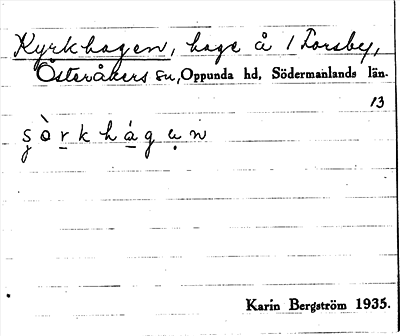 Kyrkhagen, hage å 1 Forsby,
Österåkers sn, Oppunda hd, Södermanlands län.
13
Karin Bergström 1935.